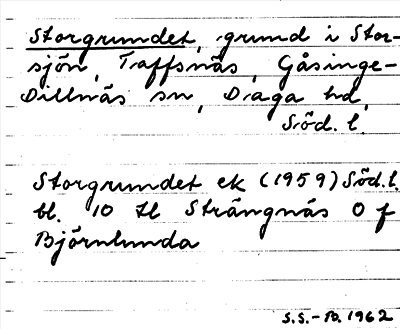 Storgrundet, grund i Stor-
sjön, Taffsnäs, Gåsinge-
Dillnäs sn, Daga hd,
Söd. l.
Storgrundet ek (1959) Söd. l.
bl. 10 II Strängnäs O f
Björnlunda
S.S.-B. 1962